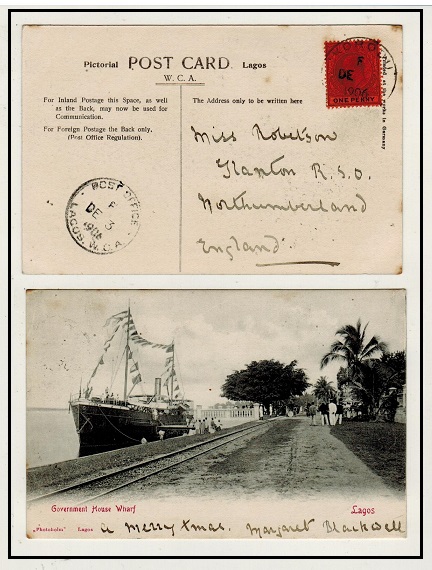 Pictorial POST CARD Lagos
W. C. A.
For Inland Postage this Space, as well
as the Back, may now be used for
Communication.
For Foreign Postage the Back only,
(Post Office Regulation).
The Address only to be written here
F
DE
1906
ONE PENNY
Miss Robelson
Glanton R.S.O.
Northumberland
England
POST OFFICE
F
DE 3
1906
LAGOS, W.C.A.
Government House Wharf
Lagos
"Photoholm" Lagos
a Merry Xmas. Margaret Blackwell